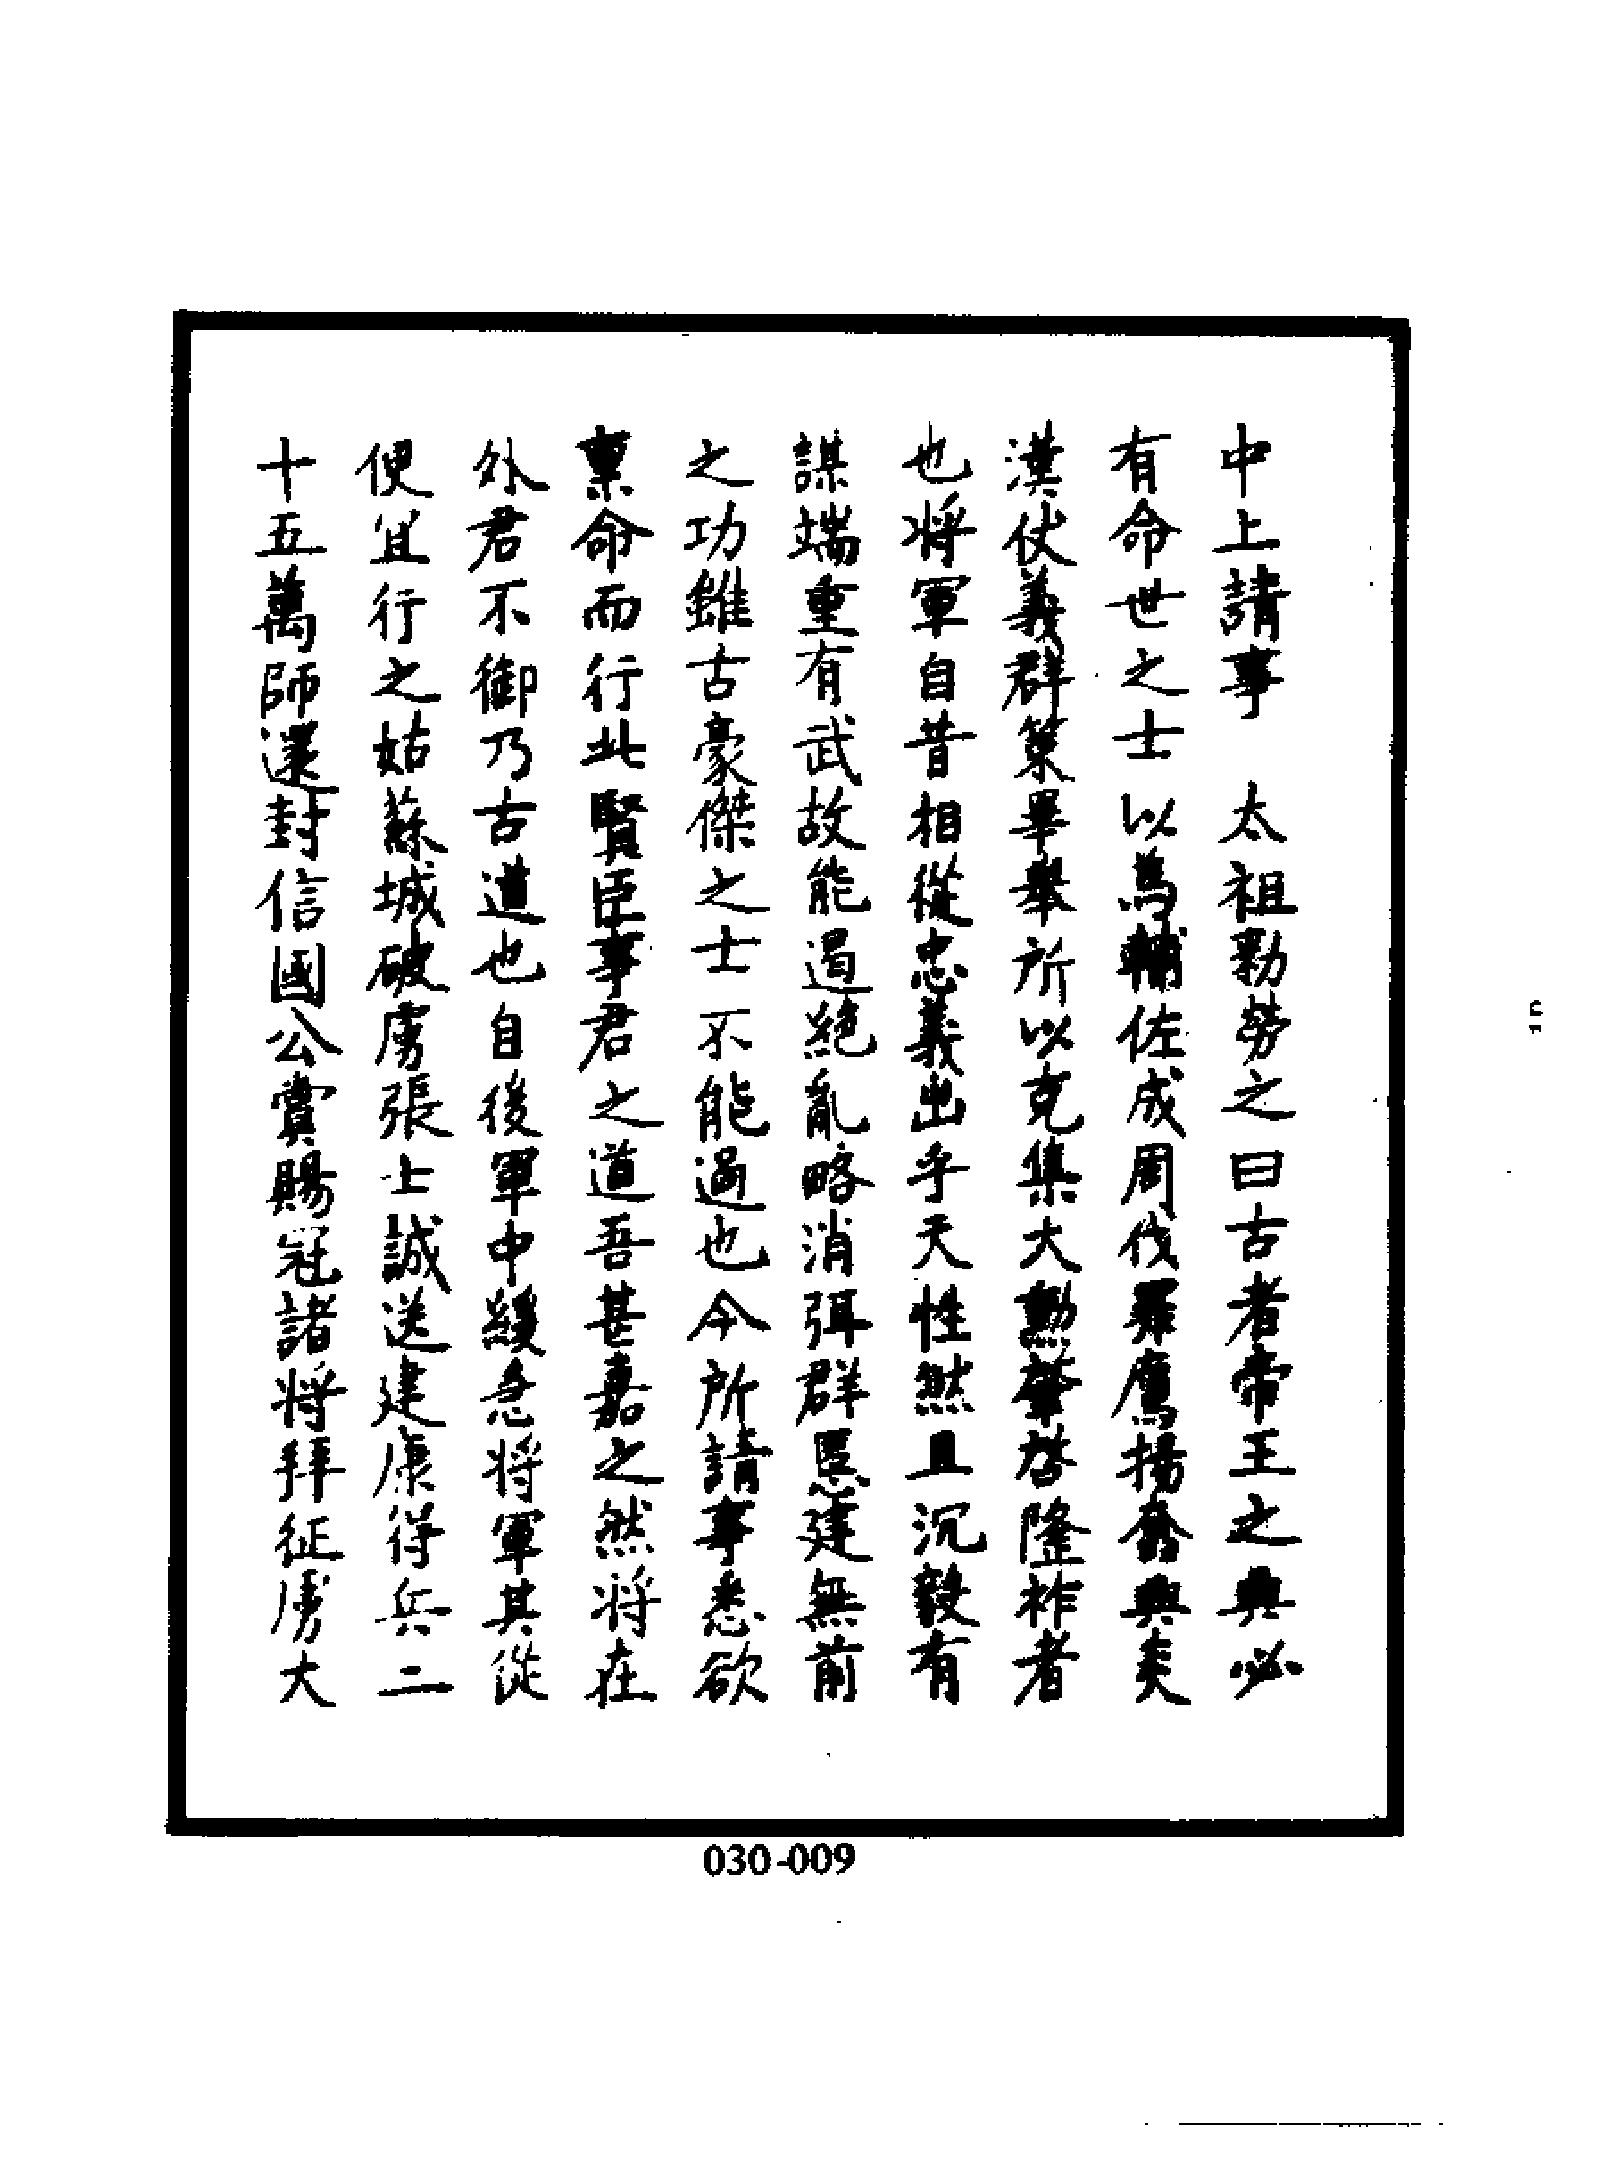 中上請事　太祖勅勞之曰古者帝王之興必
有命世之士以為輔佐成周伐罪鷹揚奮興炎
漢仗義群策畢舉所以克集大勳肇啓隆祚者
也將軍自昔相從忠義出乎天性然且沉毅有
謀端重有武故能遏絕亂略消弭群慝建無前
之功雖古豪傑之士不能過也今所請事悉欲
稟命而行此賢臣事君之道吾甚嘉之然將在
外君不御乃古道也自後軍中緩急將軍其從
便宜行之姑蘇城破虜張士誠送建康得兵二
十五萬師還封信國公賞賜冠諸將拜征虜大
030-009